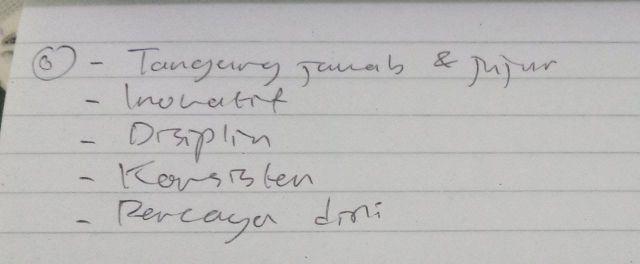 ⑥ - Tangung jawab & jujur
- Inovatif
- Disiplin
- Konsisten
- Percaya diri